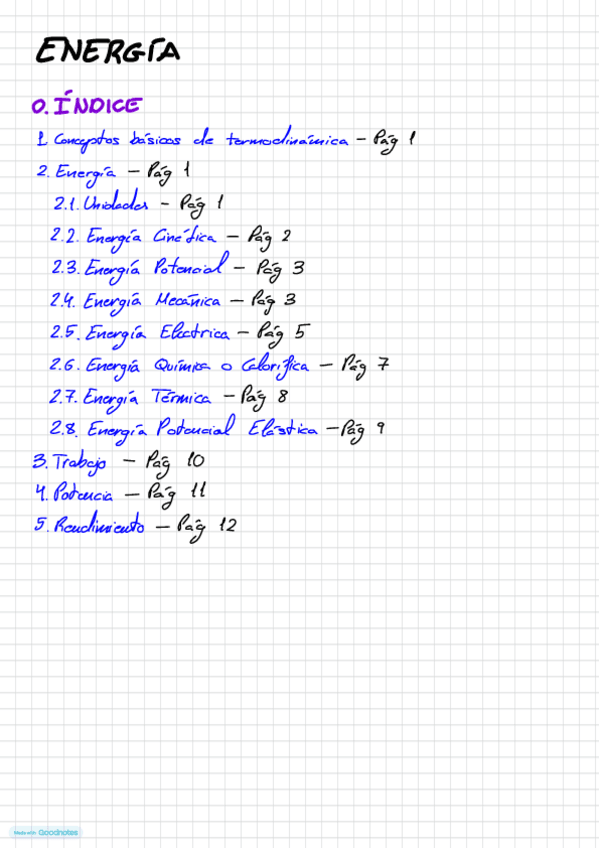 ENERGÍA
0. ÍNDICE
1. Conceptos básicos de termodinámica – Pág 1
2. Energía – Pág 1
2.1. Unidades – Pág 1
2.2. Energía Cinética – Pág 2
2.3. Energía Potencial – Pág 3
2.4. Energía Mecánica – Pág 3
2.5. Energía Electrica – Pág 5
2.6. Energía Química o Calorífica – Pág 7
2.7. Energía Térmica – Pág 8
2.8. Energía Potencial Elástica – Pág 9
3. Trabajo – Pág 10
4. Potencia – Pág 11
5. Rendimiento – Pág 12
Made with Goodnotes